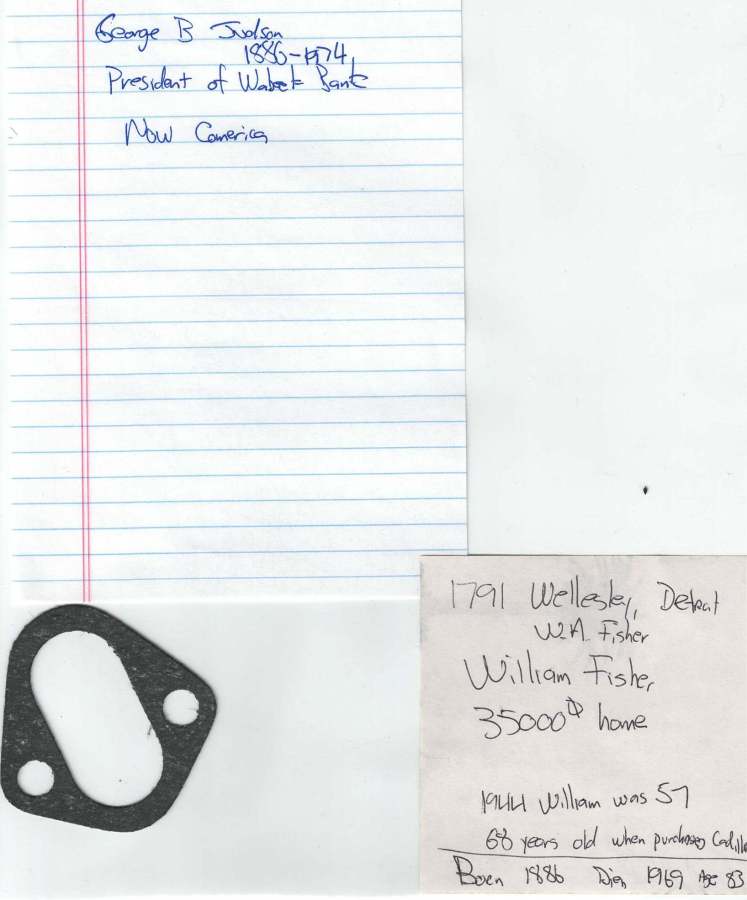 George B Judson
1886-1974
President of Wabek Bank
Now Comerica
1791 Wellesley, Detroit
W.A. Fisher
William Fisher
35000$ home
1944 William was 57
68 years old when purchased Cadilla
Born 1886 Died 1969 Age 83